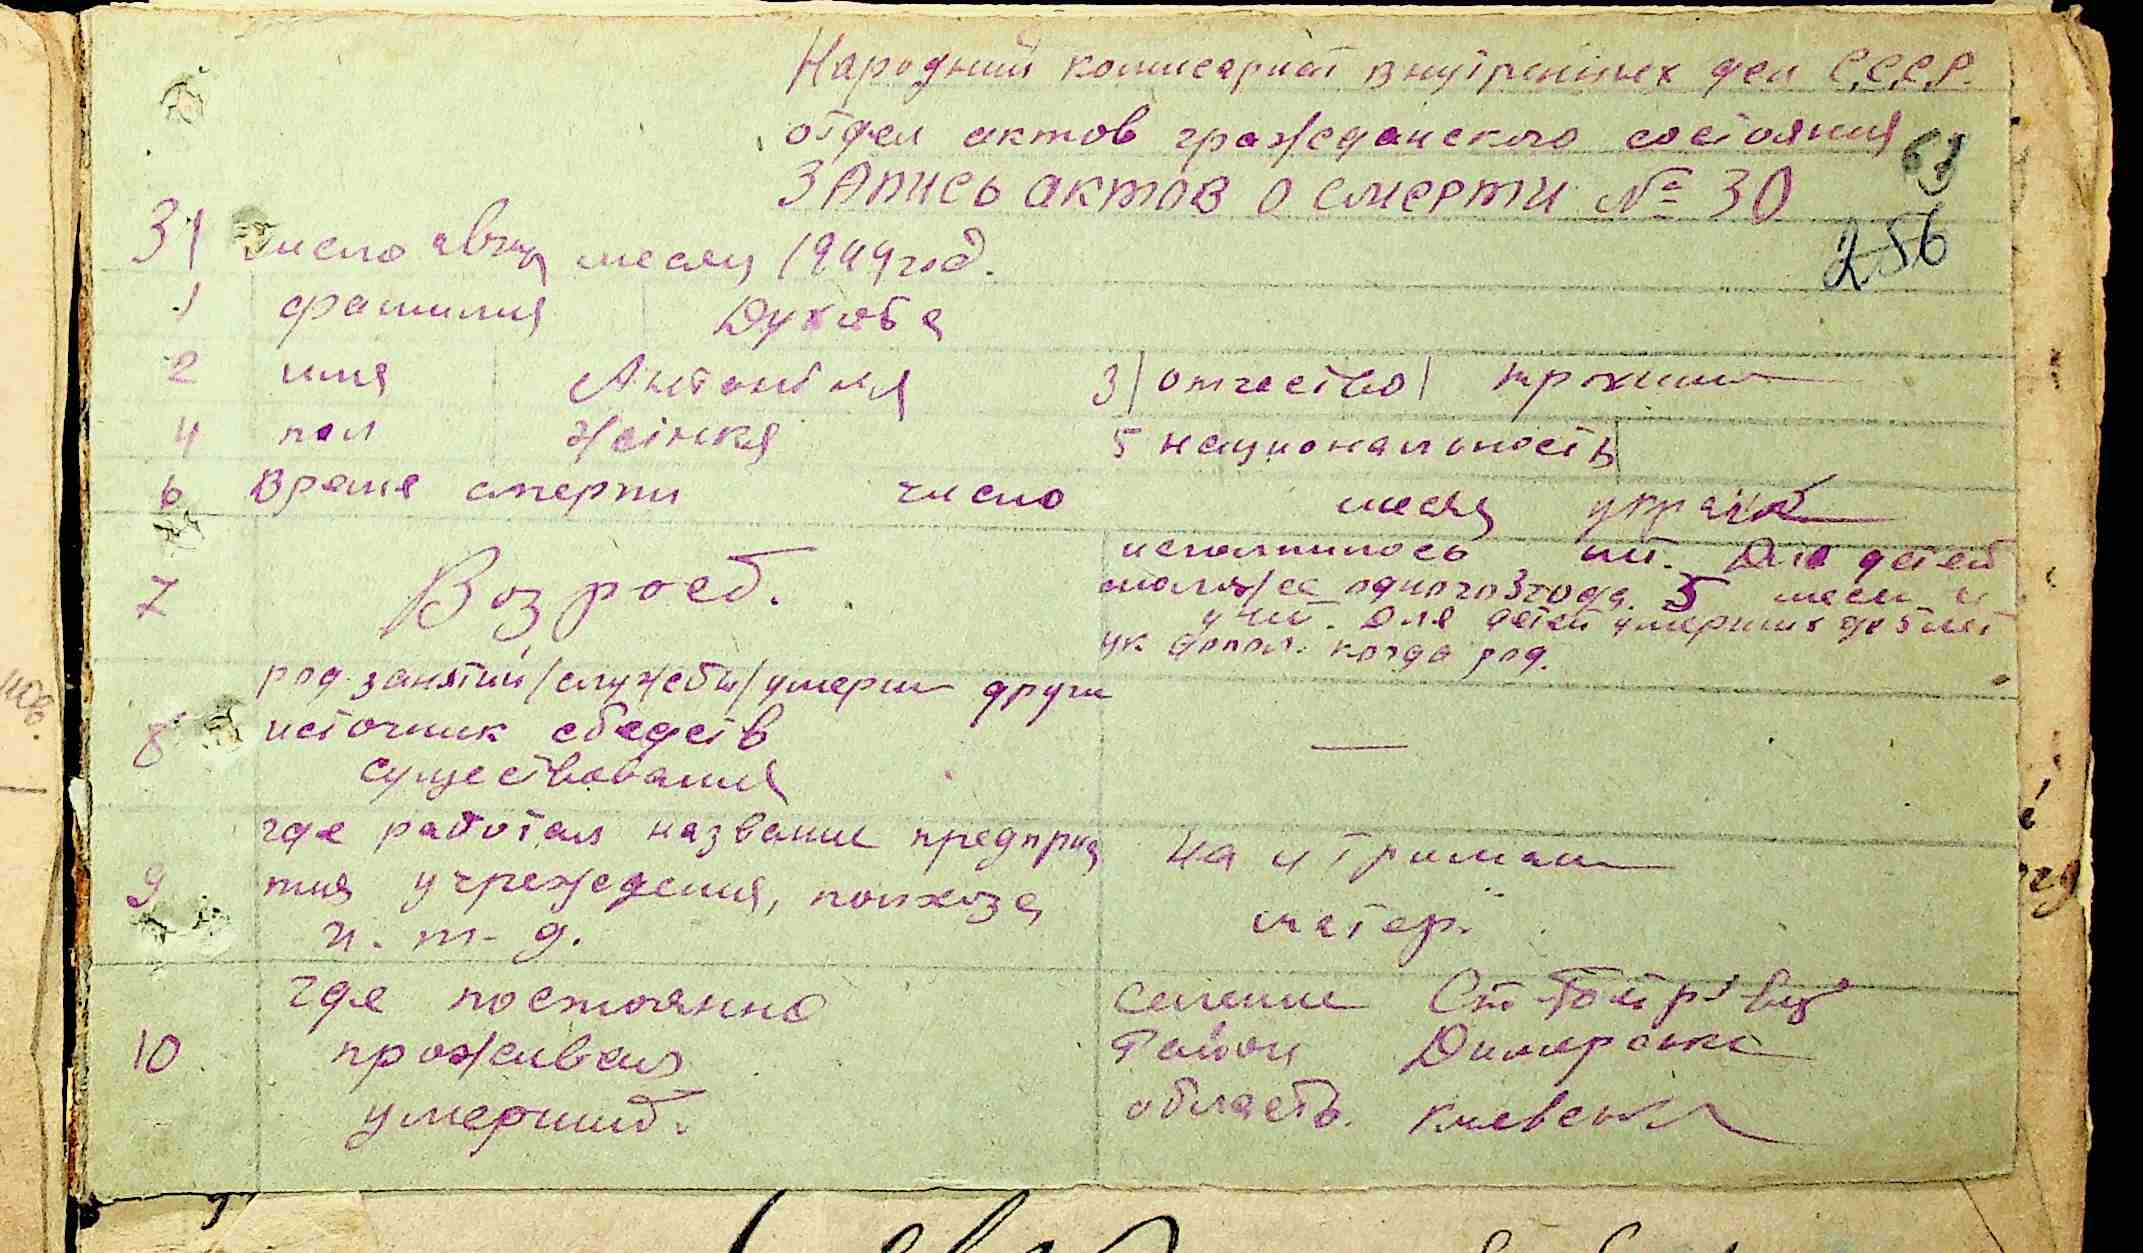 Народний комисариат внутренних дел С.С.С.Р.
отдел актов гражеданского состояния
69
ЗАпись актов о смерти № 30
256
31 число авгус месяц 1944 год.
1 фамилия Духова
2 имя Антоніна 3/ отчество/
4 пол жінка 5 национальность
6 Время смерти число месяц украї
7 Возраст.
исполнилось лит. Для детей
одного года. 5 меся и
Для детей умерших до 5 лет
ук допол. когда род.
род занятий/службы/умерши други
8 источник сбедств —
существования
где работал название предприя
9 тия учреждения, колхоза
и. т. д.
На утриман
матері
где постоянно
10 проживал
умерший.
селение Ст-Петрівці
район Димерська
область. Киевська